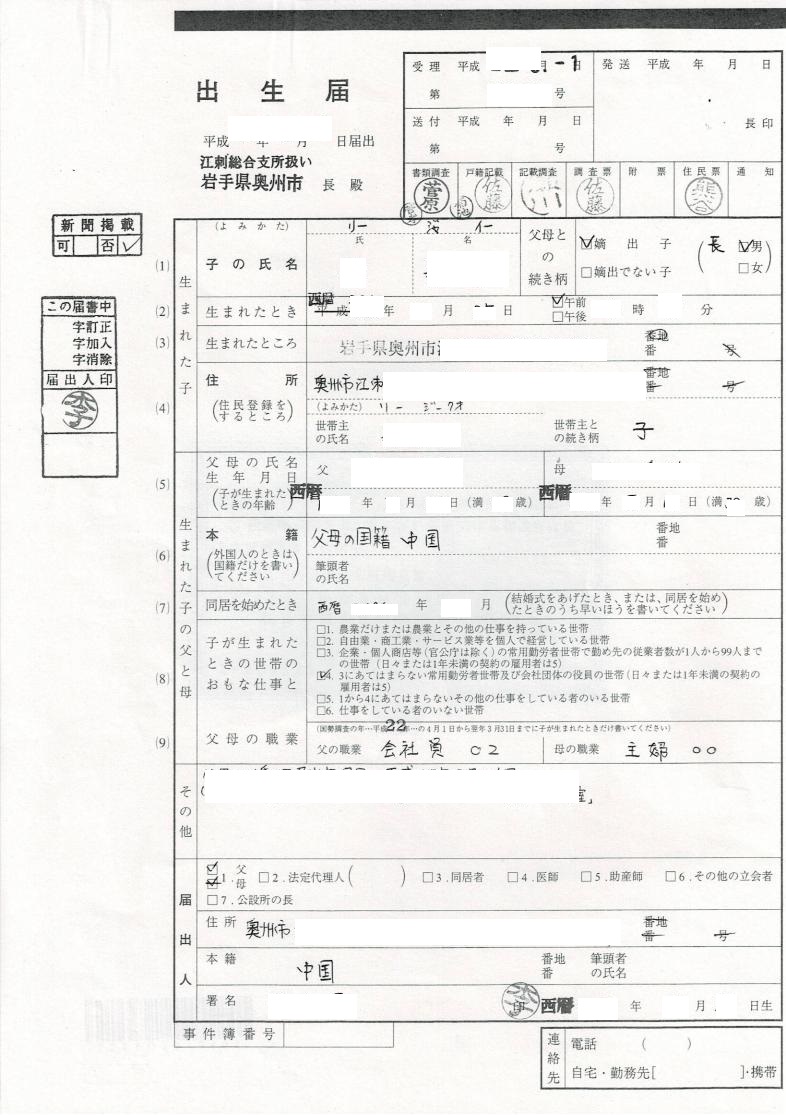 出生届
平成 年 月 日届出
江刺総合支所扱い
岩手県奥州市 長 殿
受理 平成 月 日
第 号
送付 平成 年 月 日
第 号
発送 平成 年 月 日
長印
書類調査 戸籍記載 記載調査 調査票 附票 住民票 通知
菅原 佐藤 川 佐藤 熊谷
新聞掲載
可 否
この届書中
字訂正
字加入
字消除
届出人印
李
生まれた子
(1)
(よみかた) リー
氏 名
子の氏名
父母との続き柄
嫡出子
嫡出でない子
(長 男
女)
(2) 生まれたとき
西暦
平成 年 月 日
午前
午後
時 分
(3) 生まれたところ
岩手県奥州市
番地
番 号
(4)
住所
(住民登録をするところ)
奥州市江刺
番地
番 号
(よみかた) リー ジークオ
世帯主の氏名
世帯主との続き柄 子
生まれた子の父と母
(5)
父母の氏名
生年月日
(子が生まれたときの年齢)
父 母
西暦 年 月 日(満 歳)
西暦 年 月 日(満 歳)
(6)
本籍
(外国人のときは国籍だけを書いてください)
父母の国籍 中国
番地
番
筆頭者の氏名
(7) 同居を始めたとき
西暦 年 月
(結婚式をあげたとき、または、同居を始めたときのうち早いほうを書いてください)
(8)
子が生まれたときの世帯のおもな仕事と
1. 農業だけまたは農業とその他の仕事を持っている世帯
2. 自由業・商工業・サービス業等を個人で経営している世帯
3. 企業・個人商店等(官公庁は除く)の常用勤労者世帯で勤め先の従業者数が1人から99人まで
の世帯(日々または1年未満の契約の雇用者は5)
4. 3にあてはまらない常用勤労者世帯及び会社団体の役員の世帯(日々または1年未満の契約の
雇用者は5)
5. 1から4にあてはまらないその他の仕事をしている者のいる世帯
6. 仕事をしている者のいない世帯
(9) 父母の職業
22
(国勢調査の年…平成 年…の4月1日から翌年3月31日までに子が生まれたときだけ書いてください)
父の職業 会社員 02
母の職業 主婦 00
その他
届出人
1. 父
母
2. 法定代理人( )
3. 同居者
4. 医師
5. 助産師
6. その他の立会者
7. 公設所の長
住所 奥州市
番地
番 号
本籍
中国
番地
番
筆頭者の氏名
署名
印
李
西暦 年 月 日生
事件簿番号
連絡先
電話 ( )
自宅・勤務先[ ]・携帯